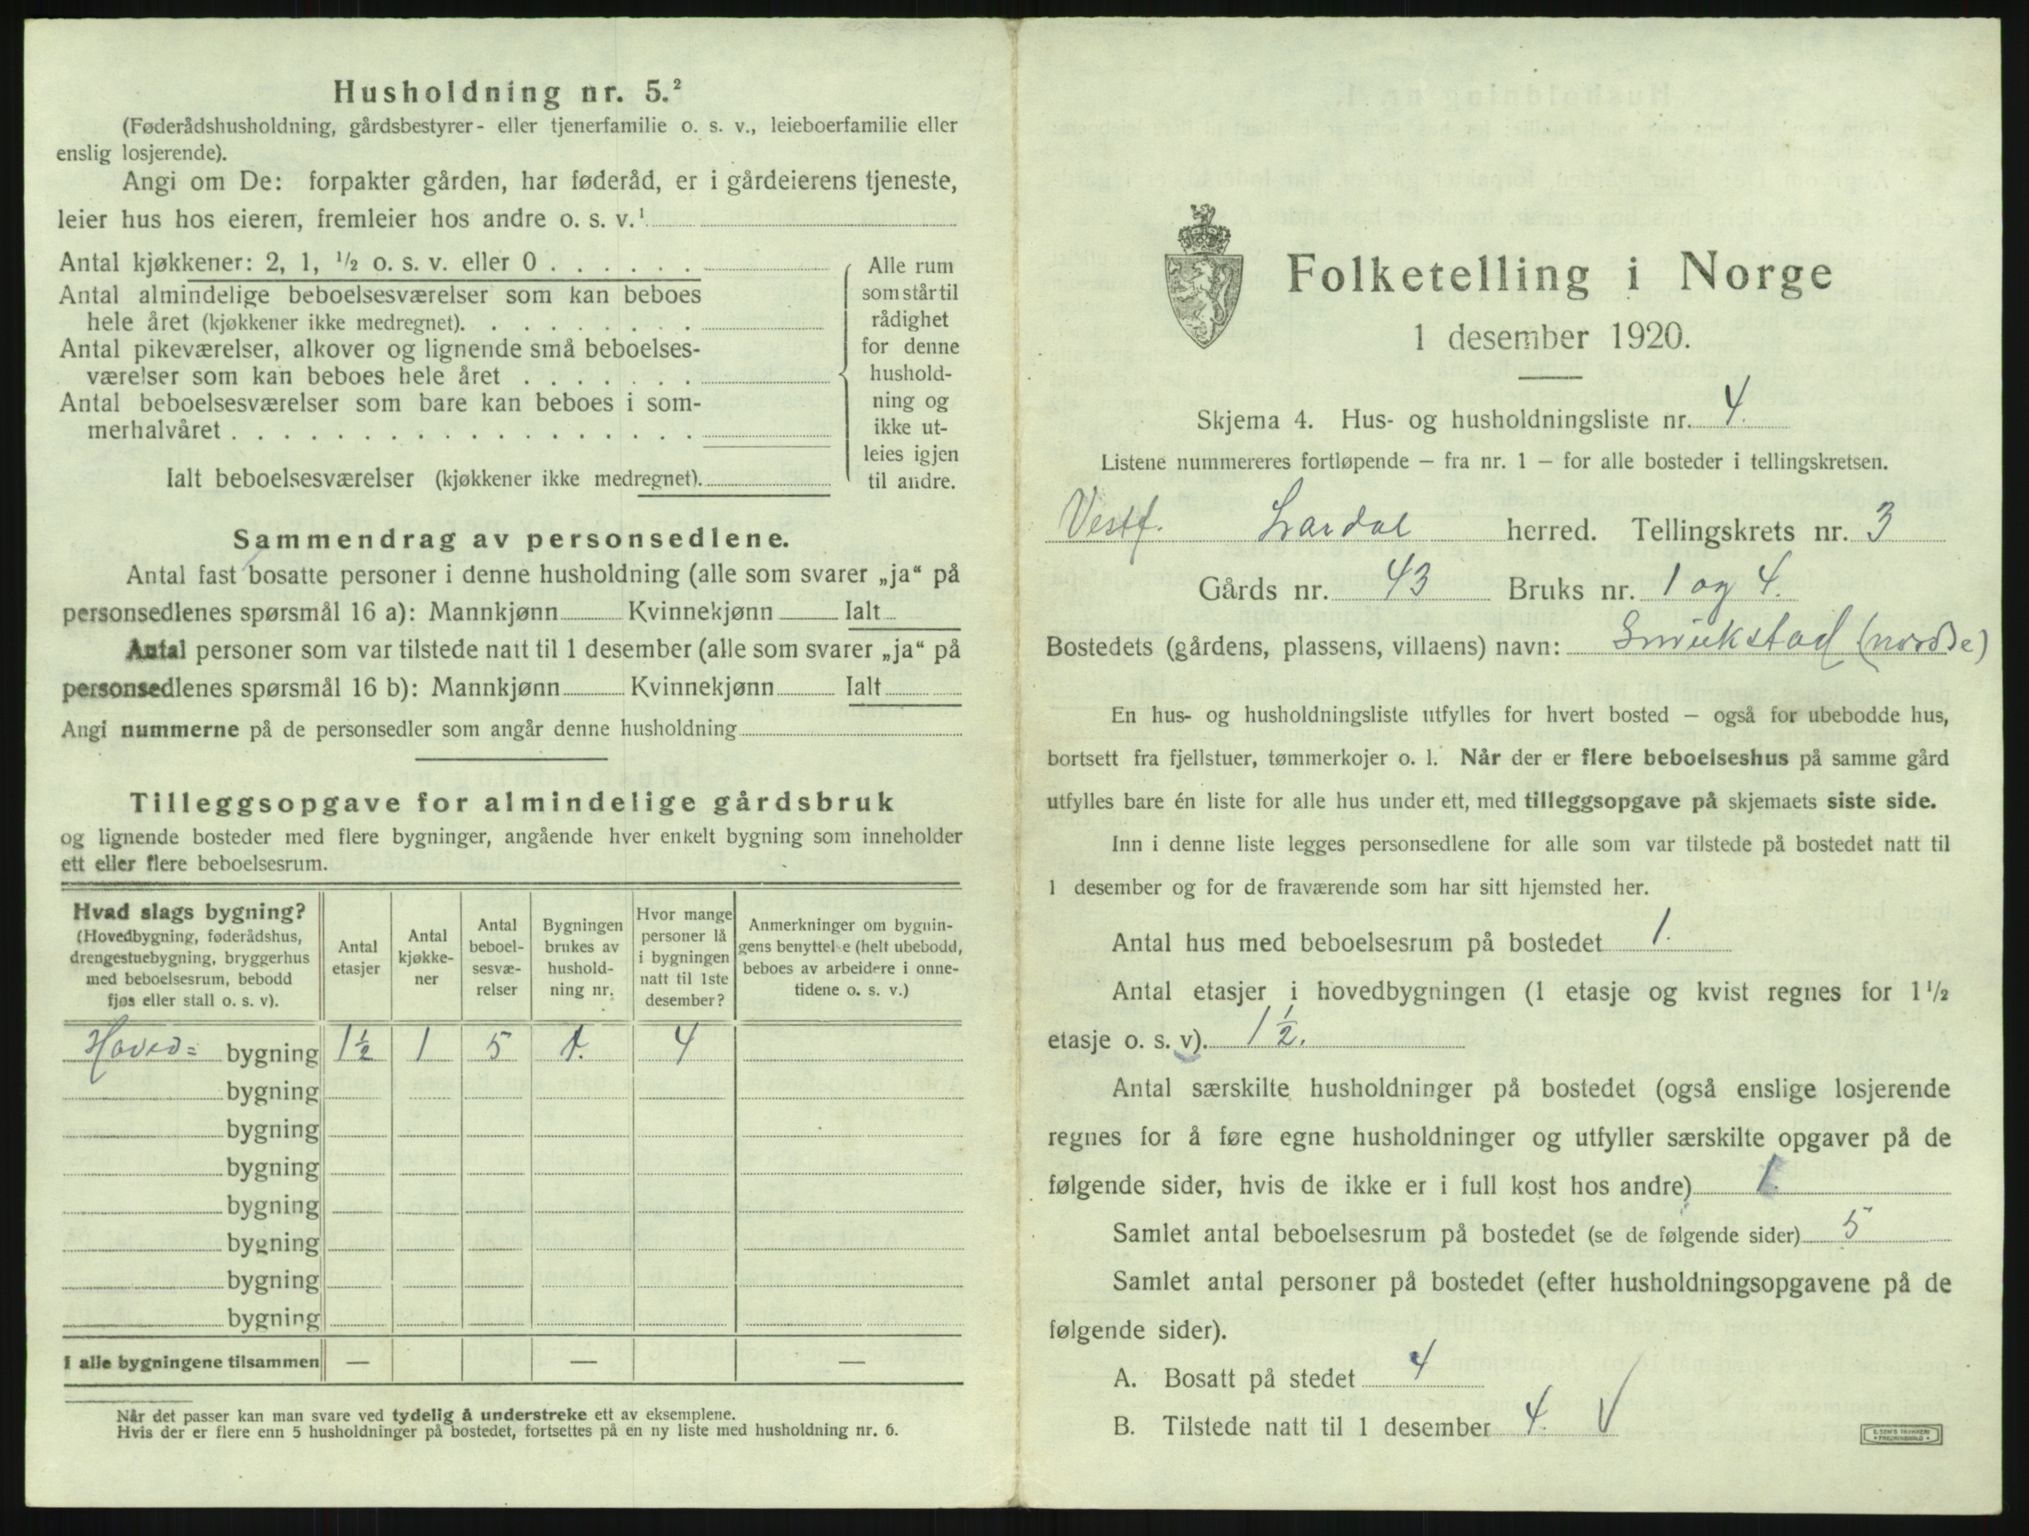 Husholdning nr. 5.²
(Føderådshusholdning, gårdsbestyrer- eller tjenerfamilie o. s. v., leieboerfamilie eller
enslig losjerende).
Angi om De: forpakter gården, har føderåd, er i gårdeierens tjeneste,
leier hus hos eieren, fremleier hos andre o. s. v.¹
Antal kjøkkener: 2, 1, ½ o. s. v. eller 0 . . . . . .
Antal almindelige beboelsesværelser som kan beboes
hele året (kjøkkener ikke medregnet). . . . . . . . .
Antal pikeværelser, alkover og lignende små beboelses-
værelser som kan beboes hele året . . . . . . .
Antal beboelsesværelser som bare kan beboes i som-
merhalvåret . . . . . . . . . . . . . . . . . .
Ialt beboelsesværelser (kjøkkener ikke medregnet).
Alle rum
som står til
rådighet
for denne
hushold-
ning og
ikke ut-
leies igjen
til andre.
Sammendrag av personsedlene.
Antal fast bosatte personer i denne husholdning (alle som svarer „ja“ på
personsedlenes spørsmål 16 a): Mannkjønn Kvinnekjønn Ialt
Antal personer som var tilstede natt til 1 desember (alle som svarer „ja“ på
personsedlenes spørsmål 16 b): Mannkjønn Kvinnekjønn Ialt
Angi nummerne på de personsedler som angår denne husholdning
Tilleggsopgave for almindelige gårdsbruk
og lignende bosteder med flere bygninger, angående hver enkelt bygning som inneholder
ett eller flere beboelsesrum.
Hvad slags bygning?
(Hovedbygning, føderådshus,
drengestuebygning, bryggerhus
med beboelsesrum, bebodd
fjøs eller stall o. s. v).
Antal
etasjer
Antal
kjøkke-
ner
Antal
beboel-
sesvæ-
relser
Bygningen
brukes av
hushold-
ning nr.
Hvor mange
personer lå
i bygningen
natt til 1ste
desember?
Anmerkninger om bygnin-
gens benyttelse (helt ubebodd,
beboes av arbeidere i onne-
tidene o. s. v.)
Hoved= bygning 1½ 1 5 1. 4
bygning
bygning
bygning
bygning
bygning
bygning
bygning
I alle bygningene tilsammen — — —
Når det passer kan man svare ved tydelig å understreke ett av eksemplene.
Hvis der er flere enn 5 husholdninger på bostedet, fortsettes på en ny liste med husholdning nr. 6.
Folketelling i Norge
1 desember 1920.
Skjema 4. Hus- og husholdningsliste nr. 4.
Listene nummereres fortløpende — fra nr. 1 — for alle bosteder i tellingskretsen.
Vestf. Lardal herred. Tellingskrets nr. 3
Gårds nr. 43 Bruks nr. 1 og 4.
Bostedets (gårdens, plassens, villaens) navn: (nordre)
En hus- og husholdningsliste utfylles for hvert bosted — også for ubebodde hus,
bortsett fra fjellstuer, tømmerkojer o. l. Når der er flere beboelseshus på samme gård
utfylles bare én liste for alle hus under ett, med tilleggsopgave på skjemaets siste side.
Inn i denne liste legges personsedlene for alle som var tilstede på bostedet natt til
1 desember og for de fraværende som har sitt hjemsted her.
Antal hus med beboelsesrum på bostedet 1.
Antal etasjer i hovedbygningen (1 etasje og kvist regnes for 1½
etasje o. s. v). 1½.
Antal særskilte husholdninger på bostedet (også enslige losjerende
regnes for å føre egne husholdninger og utfyller særskilte opgaver på de
følgende sider, hvis de ikke er i full kost hos andre) 1.
Samlet antal beboelsesrum på bostedet (se de følgende sider) 5
Samlet antal personer på bostedet (efter husholdningsopgavene på de
følgende sider).
A. Bosatt på stedet 4
B. Tilstede natt til 1 desember 4. V